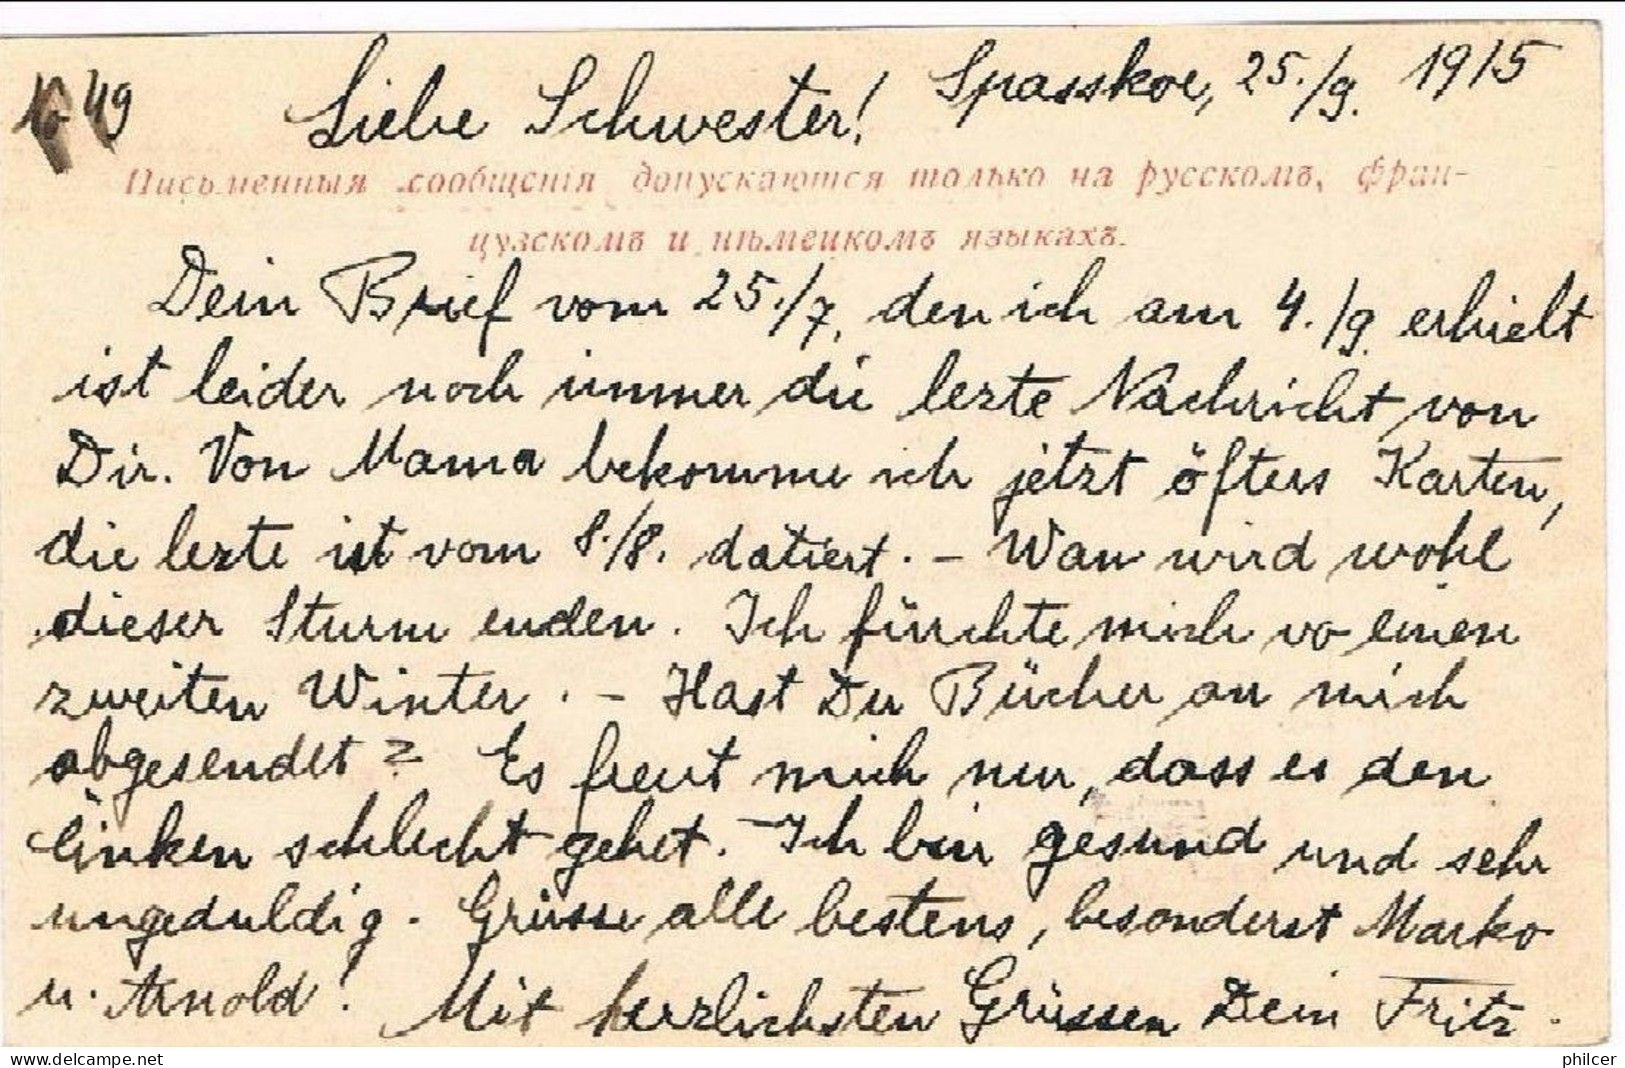 No 49 Liebe Schwester! Spasskoe, 25./9. 1915
Письменныя сообщенія допускаются только на русскомъ, фран-
цузскомъ и нѣмецкомъ языкахъ.
Dein Brief vom 25./7. den ich am 4./9. erhielt
ist leider noch immer die lezte Nachricht von
Dir. Von Mama bekomme ich jetzt öfters Karten,
die lezte ist vom 8./8. datiert. - Wan wird wohl
dieser Sturm enden. Ich fürchte mich vo einen
zweiten Winter. - Hast Du Bücher an mich
abgesendet? Es freut mich nur, dass es den
schlecht gehet. - Ich bin gesund und sehr
ungeduldig. Grüsse alle bestens, besonderst Marko
u. Arnold! Mit herzlichsten Grüssen Dein Fritz.
philcer